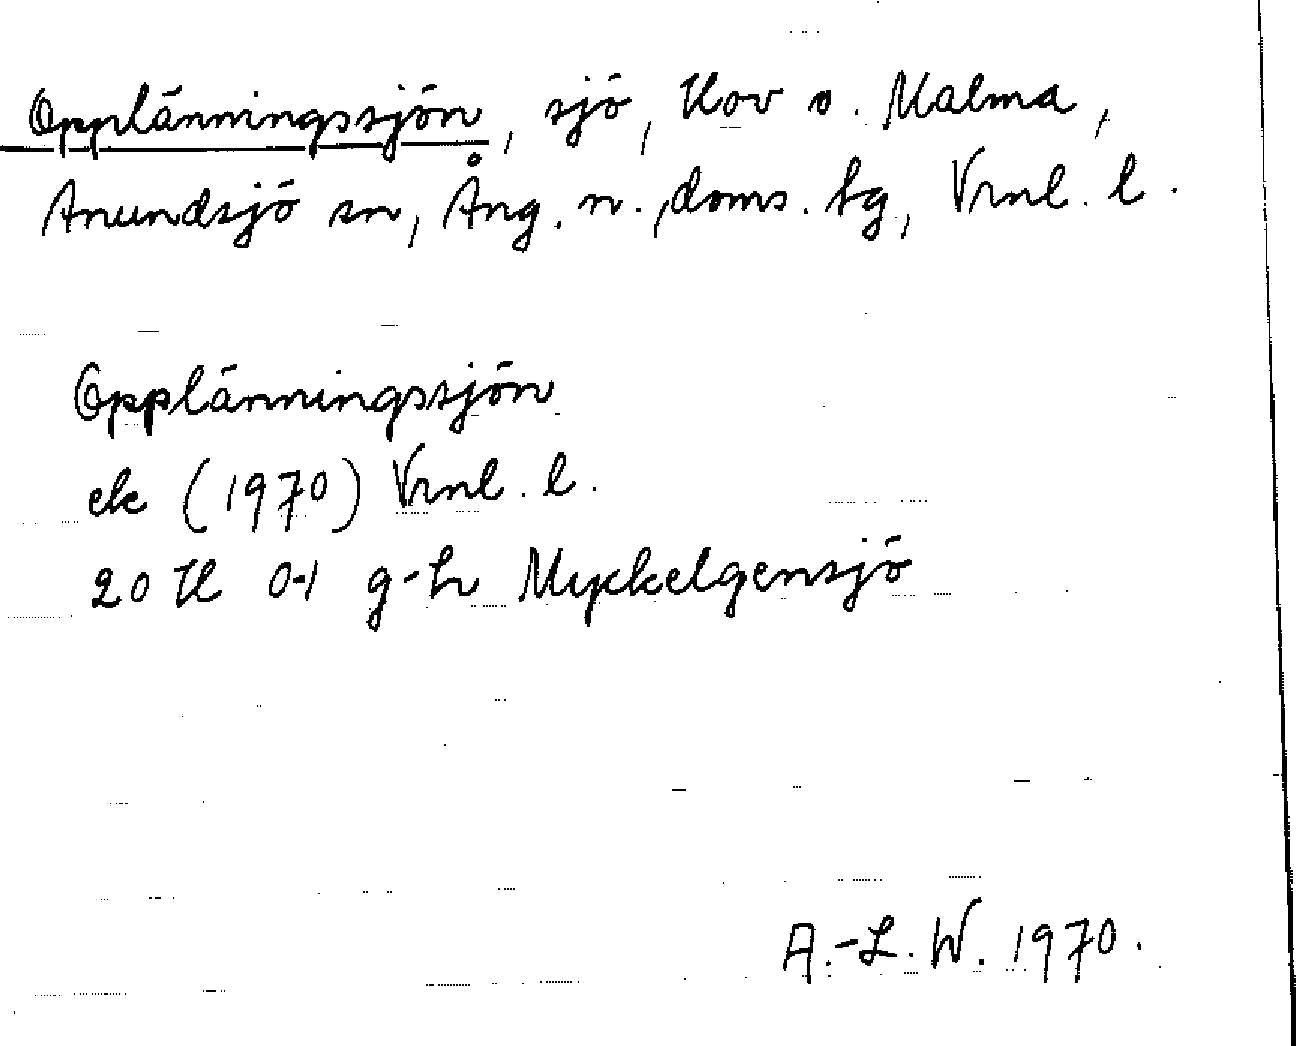 Opplänningssjön, sjö, Hov o. Malma,
Anundsjö sn, Ång. n., doms. tg, Vrnl. l.
Opplänningssjön
ek (1970) Vrnl. l.
20 H 0-1 g-h Myckelgensjö
A.-L. W. 1970.